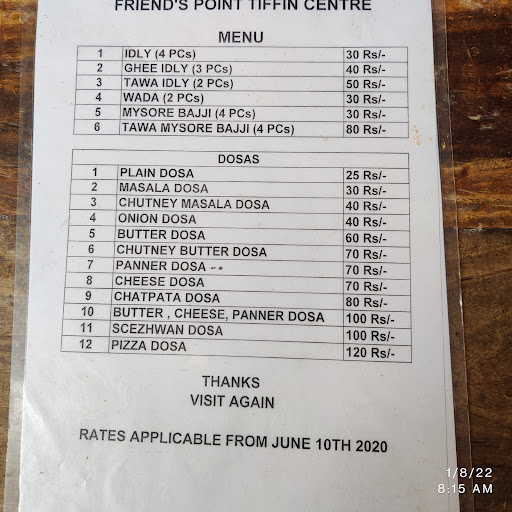 FRIEND'S POINT TIFFIN CENTRE
MENU
1 IDLY (4 PCs) 30 Rs/-
2 GHEE IDLY (3 PCs) 40 Rs/-
3 TAWA IDLY (2 PCs) 50 Rs/-
4 WADA (2 PCs) 30 Rs/-
5 MYSORE BAJJI (4 PCs) 30 Rs/-
6 TAWA MYSORE BAJJI (4 PCs) 80 Rs/-
DOSAS
1 PLAIN DOSA 25 Rs/-
2 MASALA DOSA 30 Rs/-
3 CHUTNEY MASALA DOSA 40 Rs/-
4 ONION DOSA 40 Rs/-
5 BUTTER DOSA 60 Rs/-
6 CHUTNEY BUTTER DOSA 70 Rs/-
7 PANNER DOSA 70 Rs/-
8 CHEESE DOSA 70 Rs/-
9 CHATPATA DOSA 80 Rs/-
10 BUTTER , CHEESE, PANNER DOSA 100 Rs/-
11 SCEZHWAN DOSA 100 Rs/-
12 PIZZA DOSA 120 Rs/-
THANKS
VISIT AGAIN
RATES APPLICABLE FROM JUNE 10TH 2020
1/8/22
8:15 AM